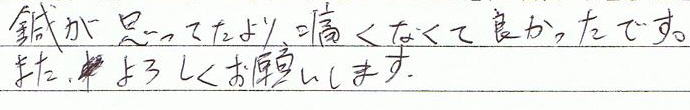 鍼が思ってたより、痛くなくて良かったです。
また、よろしくお願いします.